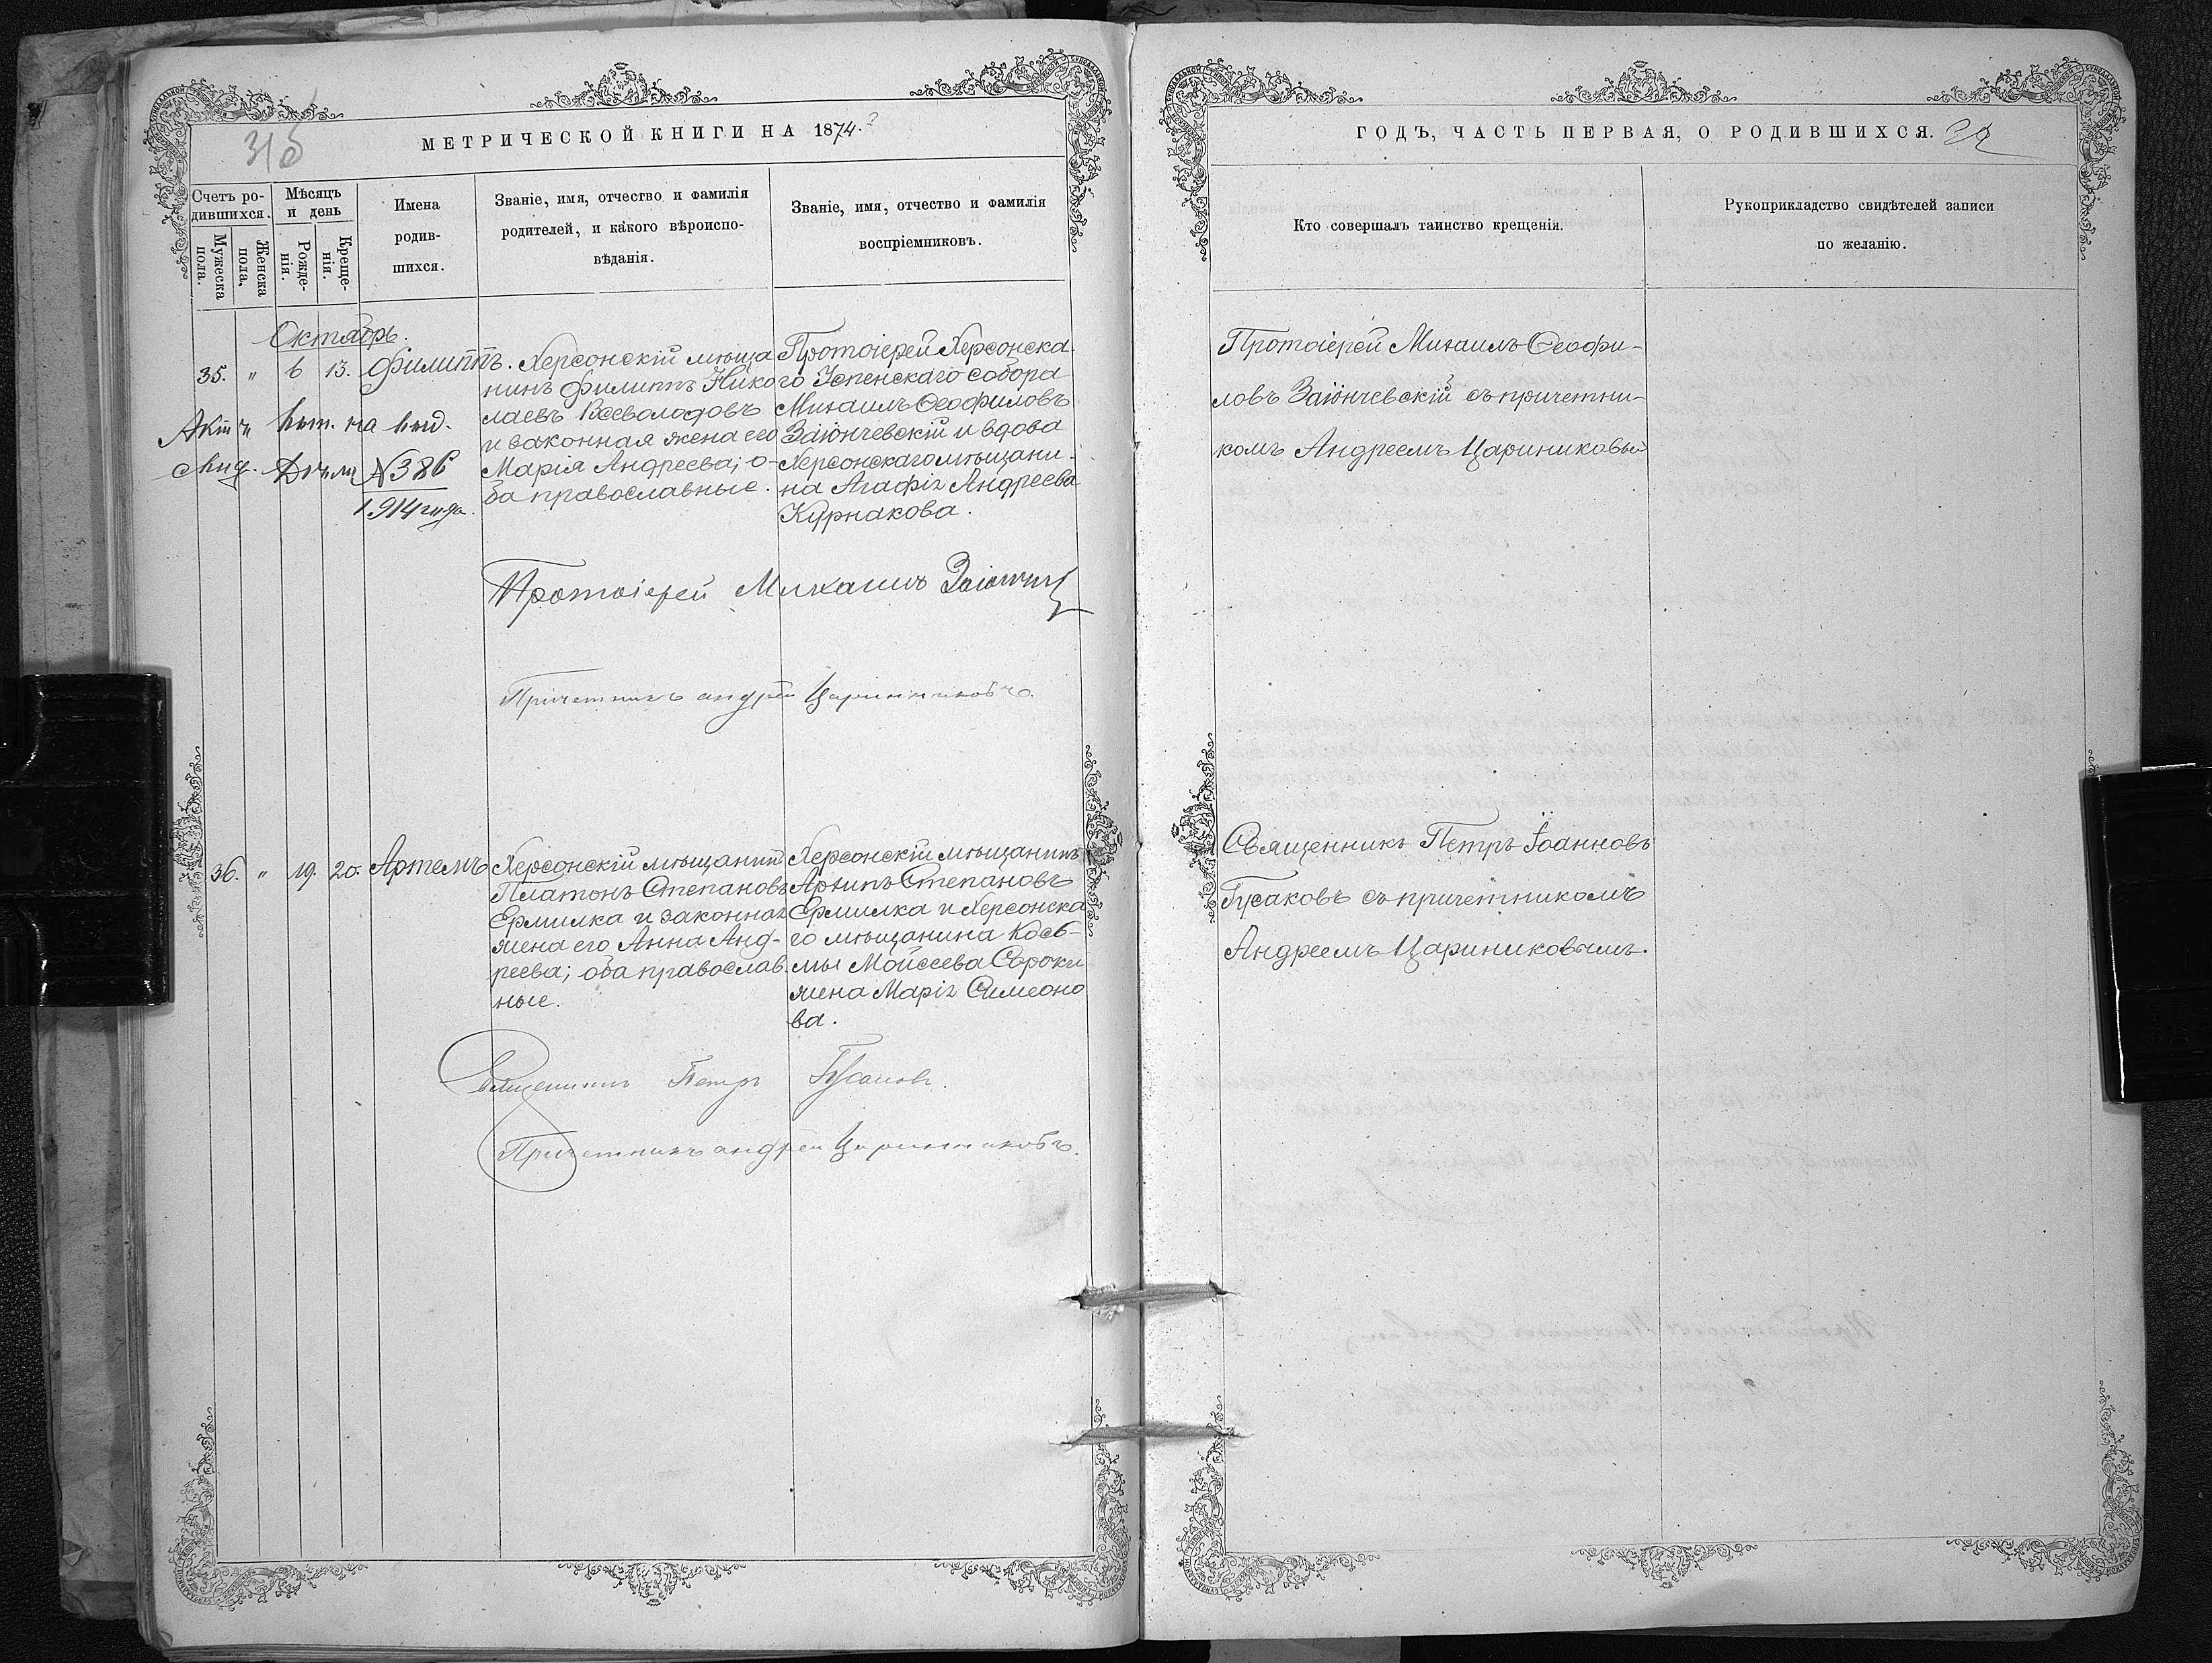 31б
МЕТРИЧЕСКОЙ КНИГИ НА 1874.
Счетъ ро-
дившихся.
Мужеска
пола.
Женска
пола.
Мѣсяцъ
и день
Рожде-
нія.
Креще-
нія.
Имена
родив-
шихся.
Званіе, имя, отчество и фамилія
родителей, и какого вѣроиспо-
вѣданія.
Званіе, имя, отчество и фамилія
воспріемниковъ.
Октябрь.
35. " 6 13. Филиппъ.
Херсонскій мѣща
нинъ Филиппъ Нико
лаевъ Всеволодовъ
и законная жена его
Марія Андреева; о-
ба православные.
Протоіерей Херсонска
го Успенскаго собора
Михаилъ Ѳеофиловъ
Заіончевскій и вдова
Херсонскаго мѣщани-
на Агафія Андреева
Курнакова.
выд.
№ 386
1914 года.
Протоіерей Михаилъ
Причетникъ Андрей Цариниковъ.
36. " 19. 20. Артемъ
Херсонскій мѣщанинъ
Платонъ Степановъ
Ермилка и законная
жена его Анна Анд-
реева; оба православ
ные.
Херсонскій мѣщанинъ
Архипъ Степановъ
Ермилка и Херсонска
го мѣщанина Кось-
мы Мойсеева Сороки
жена Марія Симеоно
ва.
Священникъ Петръ Гусаковъ.
Причетникъ Андрей Цариниковъ.
ГОДЪ, ЧАСТЬ ПЕРВАЯ, О РОДИВШИХСЯ. 32
Кто совершалъ таинство крещенія.
Рукоприкладство свидѣтелей записи
по желанію.
Протоіерей Михаилъ Ѳеофи-
ловъ Заіончевскій съ причетни-
комъ Андреемъ Цариниковым
Священникъ Петръ Іоанновъ
Гусаковъ съ причетникомъ
Андреемъ Цариниковымъ.